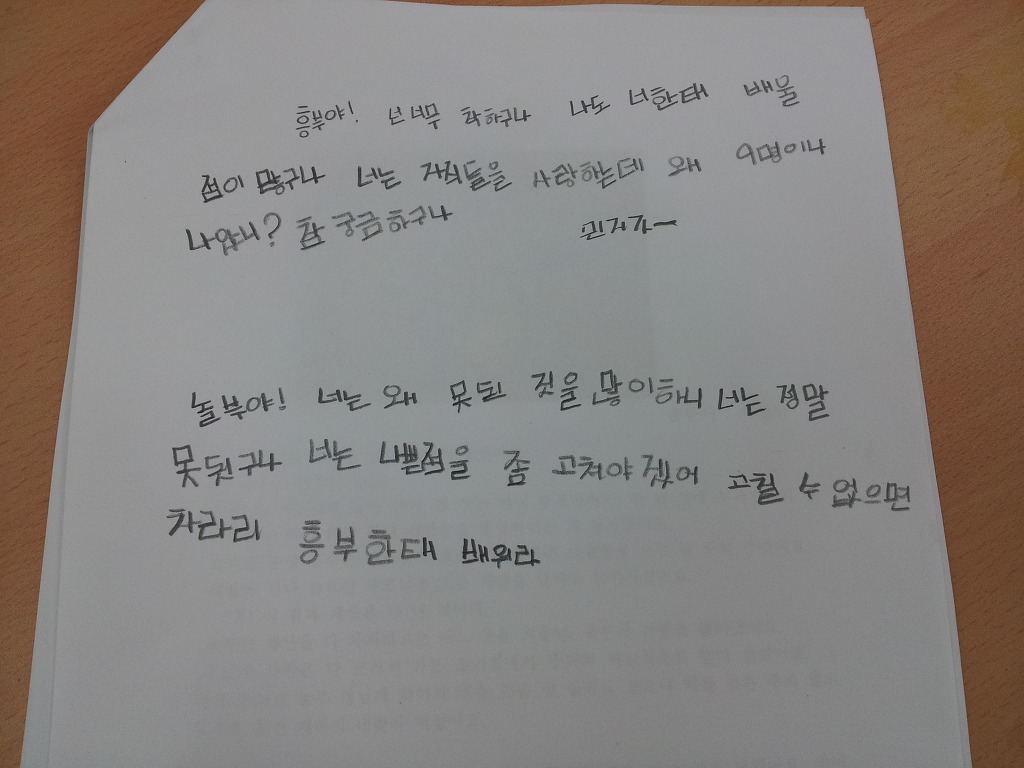 흥부야! 넌 너무 착하구나 나도 너한태 배울
점이 많구나 너는 자식들을 사랑하는데 왜 9명이나
나았니? 참 궁금하구나
놀부야! 너는 왜 못된 짓을 많이하니 너는 정말
못됬구나 너는 나쁜점을 좀 고쳐야겠어 고칠 수 없으면
차라리 흥부한태 배워라